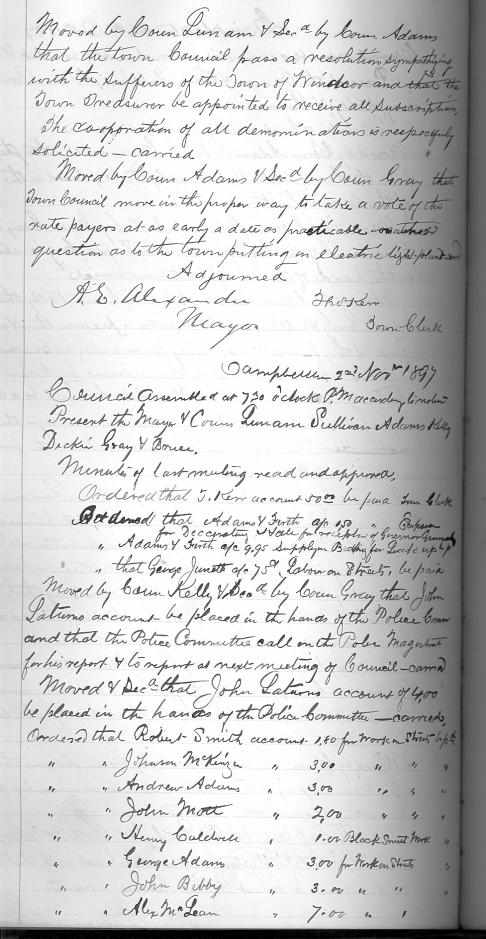 Moved by Coun Lunam & Secd by Coun Adams
that the town Council pass a resolution sympathying
with the sufferers of the Town of Windsor and that the
Town Treasurer be appointed to receive all subscription
The cooporation of all denominations is respectfuly
solicited – carried
Moved by Coun Adams & Secd by Coun Gray that
Town Council move in the proper way to take a vote of the
rate payers at as early a date as practicable
question as to the town putting in electric light plant and
Adjourned
A. E. Alexander Thos Kerr
Mayor Town Clerk
Campbellton 2nd Novr 1897
Council Assembled at 730 o'clock P.M. according
Present the Mayor & Couns Lunam Sullivan Adams Kelly
Dickie Gray & Bruce.
Minutes of last meeting read and approved.
Ordered that T. Kerr account 50.00 be paid Town Clerk
Ordered that Adams & Firth a/c 1.50 "
for Decorating Hall for reception of Governor General
" Adams & Firth a/c 9.95 Supplying for Lock up
" that George a/c 75c Labour on Streets, be paid
Moved by Coun Kelly & Secd by Coun Gray that John
Laturns account be placed in the hands of the Police Com
and that the Police Committee call on the Police Magistrate
for his report & to report at next meeting of Council – carried
Moved & Secd that John Laturns account of 4.00
be placed in the hands of the Police Committee – carried
Ordered that Robert Smith account 1.80 for Work on Streets be pd
" " Johnson McKinzie " 3.00 " " "
" " Andrew Adams " 3.00 " " "
" " John Mott " 2.00 " " "
" " Henry Caldwell " 1.00 Black Smith Work "
" " George Adams " 3.00 for Work on Streets
" " John Bibby " 3.00 " " "
" " Alex McLean " 7.00 " " "